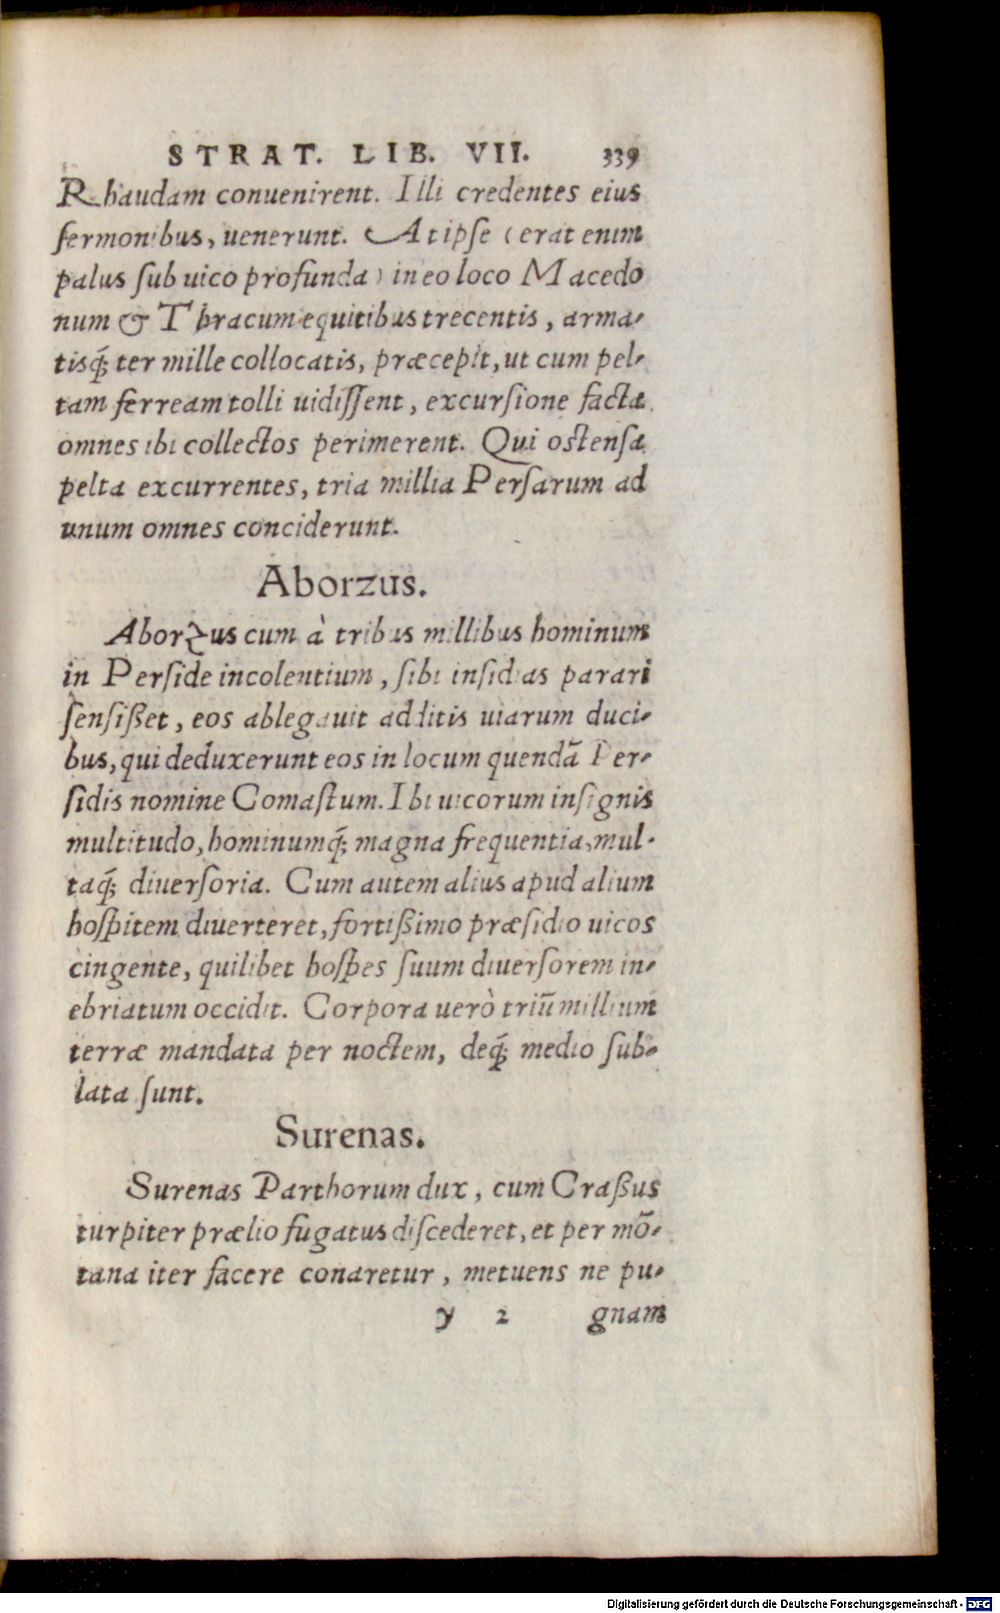 STRAT. LIB. VII. 339
Rhaudam conuenirent. Illi credentes eius
ſermonibus, uenerunt. At ipſe (erat enim
palus ſub uico profunda) in eo loco Macedo
num & Thracum equitibus trecentis, arma-
tisq́; ter mille collocatis, præcepit, ut cum pel-
tam ferream tolli uidiſſent, excurſione facta
omnes ibi collectos perimerent. Qui oſtenſa
pelta excurrentes, tria millia Perſarum ad
unum omnes conciderunt.
Aborzus.
Aborzus cum à tribus millibus hominum
in Perſide incolentium, ſibi inſidias parari
ſenſißet, eos ablegauit additis uiarum duci-
bus, qui deduxerunt eos in locum quendã Per-
ſidis nomine Comaſtum. Ibi uicorum inſignis
multitudo, hominumq́; magna frequentia, mul-
taq́; diuerſoria. Cum autem alius apud alium
hoſpitem diuerteret, fortißimo præſidio uicos
cingente, quilibet hoſpes ſuum diuerſorem in-
ebriatum occidit. Corpora uerò triũ millium
terræ mandata per noctem, deq́; medio ſub-
lata ſunt.
Surenas.
Surenas Parthorum dux, cum Craßus
turpiter prælio fugatus diſcederet, et per mõ-
tana iter facere conaretur, metuens ne pu-
y 2 gnam
Digitalisierung gefördert durch die Deutsche Forschungsgemeinschaft - DFG